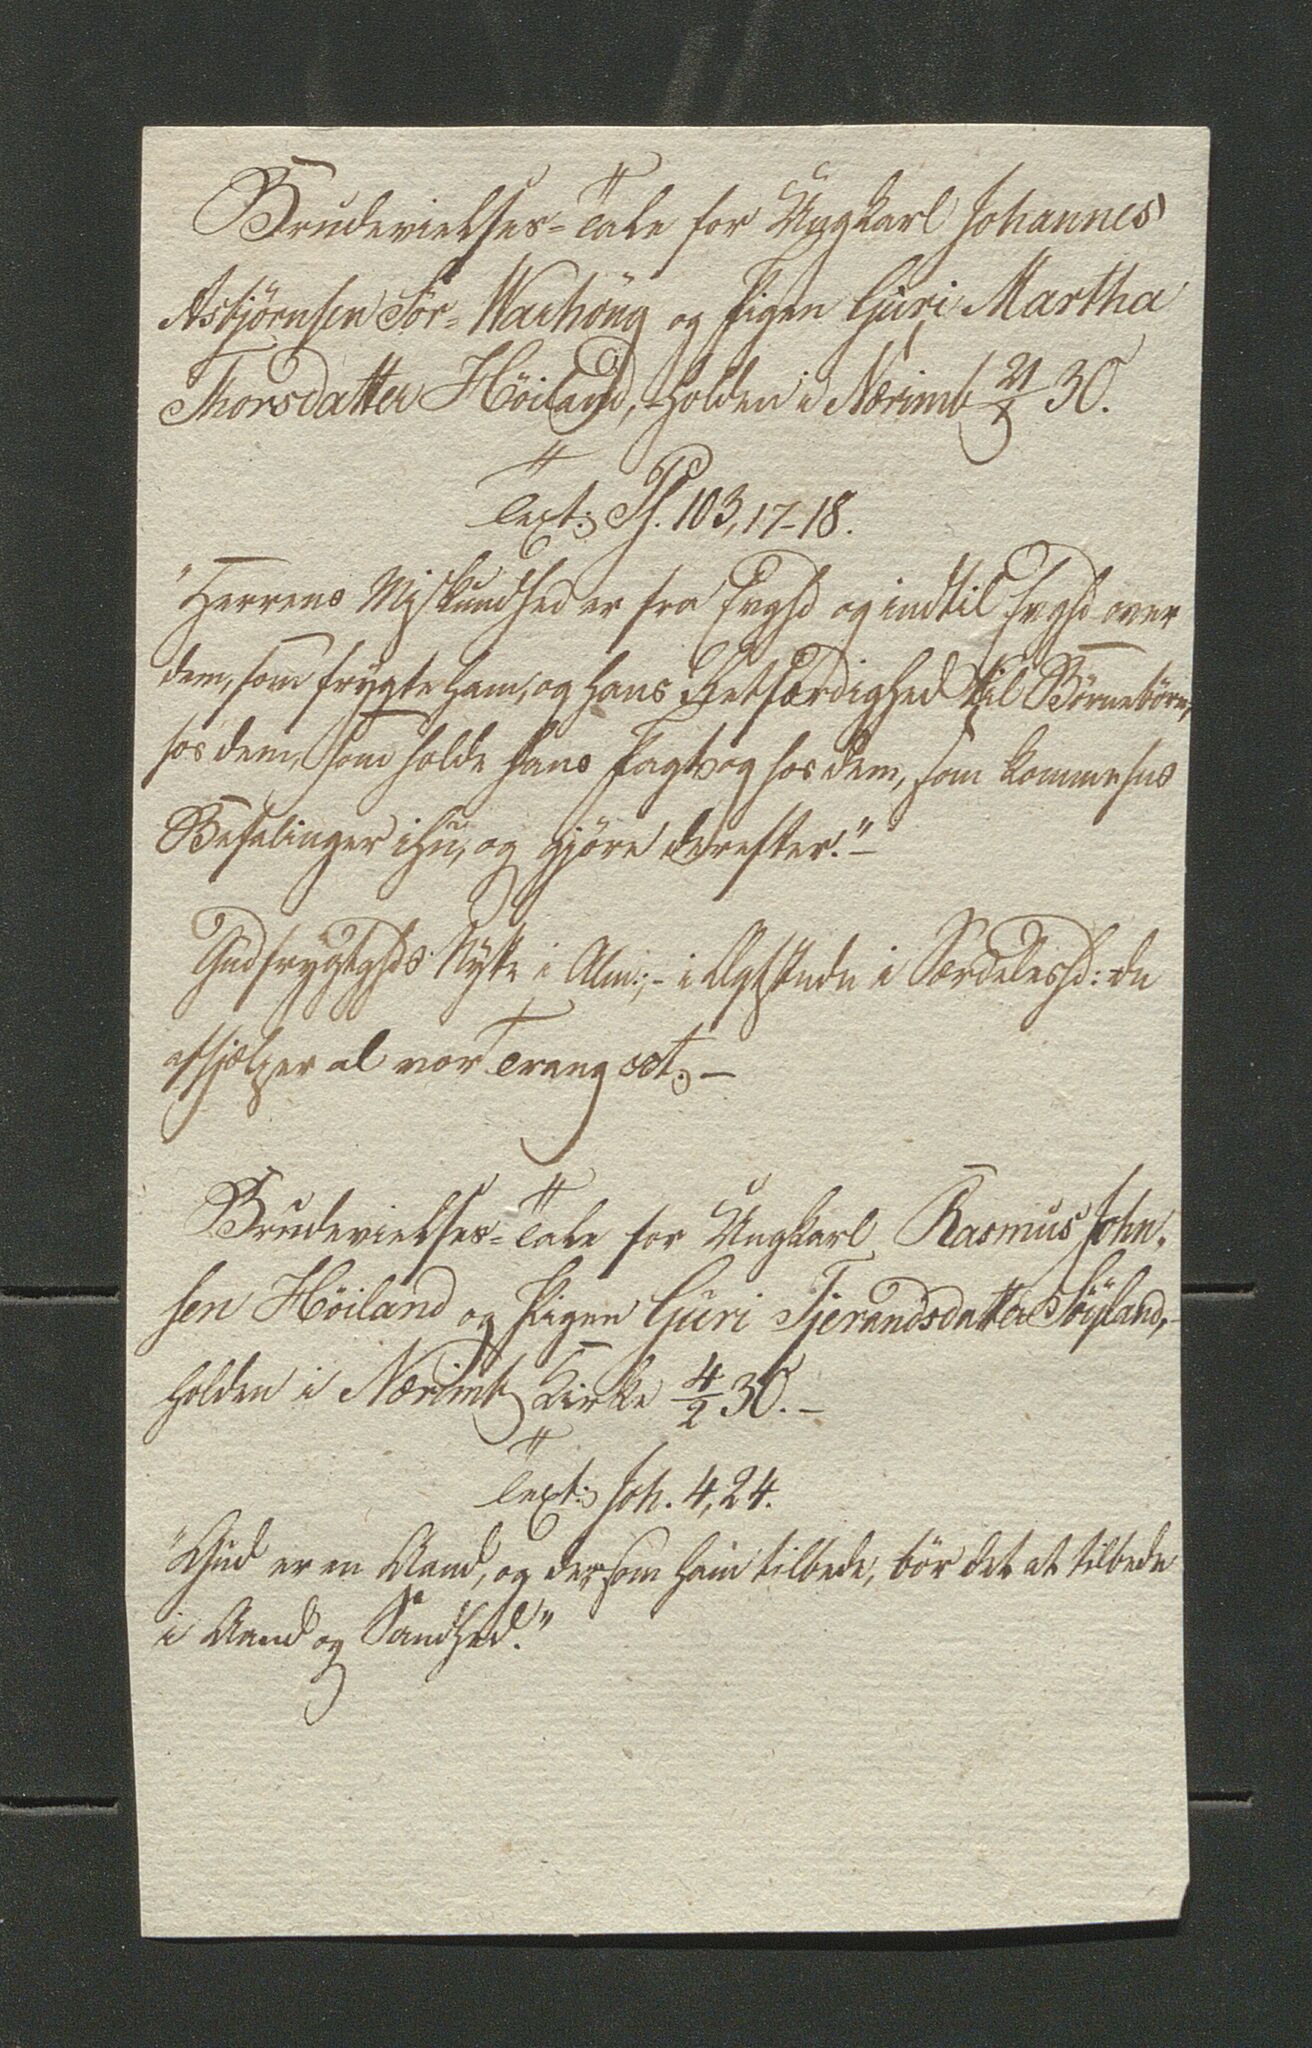 Brudevielses-Tale for Ungkarl Johannes
Asbjörnsen Sör-Warhöug og Pigen Guri Martha
Thorsdatter Höiland, holden i Nærimb 21/1 30.
Text: Ps. 103, 17-18.
"Herrens Miskundhed er fra Evghd og indtil Evghd over
dem, som frygte ham, og hans Retfærdighed til Börnebörn,
hos dem, som holde hans Pagt og hos dem, som komme hns
Befalinger ihu, og gjöre derefter." -
Gudfrygtghds Nytte i Alm:, - i Ægtstndn i Særdeleshd: dn
afhjælper al vor Trang oct. -
Brudevielses-Tale for Ungkarl Rasmus John-
sen Höiland og Pigen Guri Tjerandsdatter Söyland, -
holden i Nærimb Kirke 4/2 30. -
Text: Joh. 4, 24.
"Gud er en Aand, og der som ham tilbede, bör det at tilbede
i Aand og Sandhed."